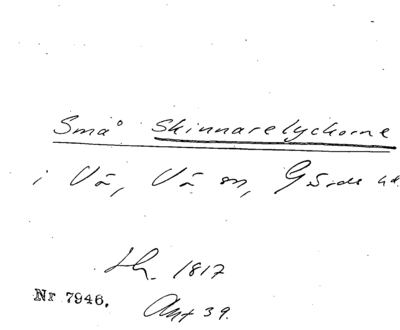 Små Skinnarelyckorne
i Vä, Vä sn, Gärds hd.
Lh. 1817
Nr 7946. Akt 39.